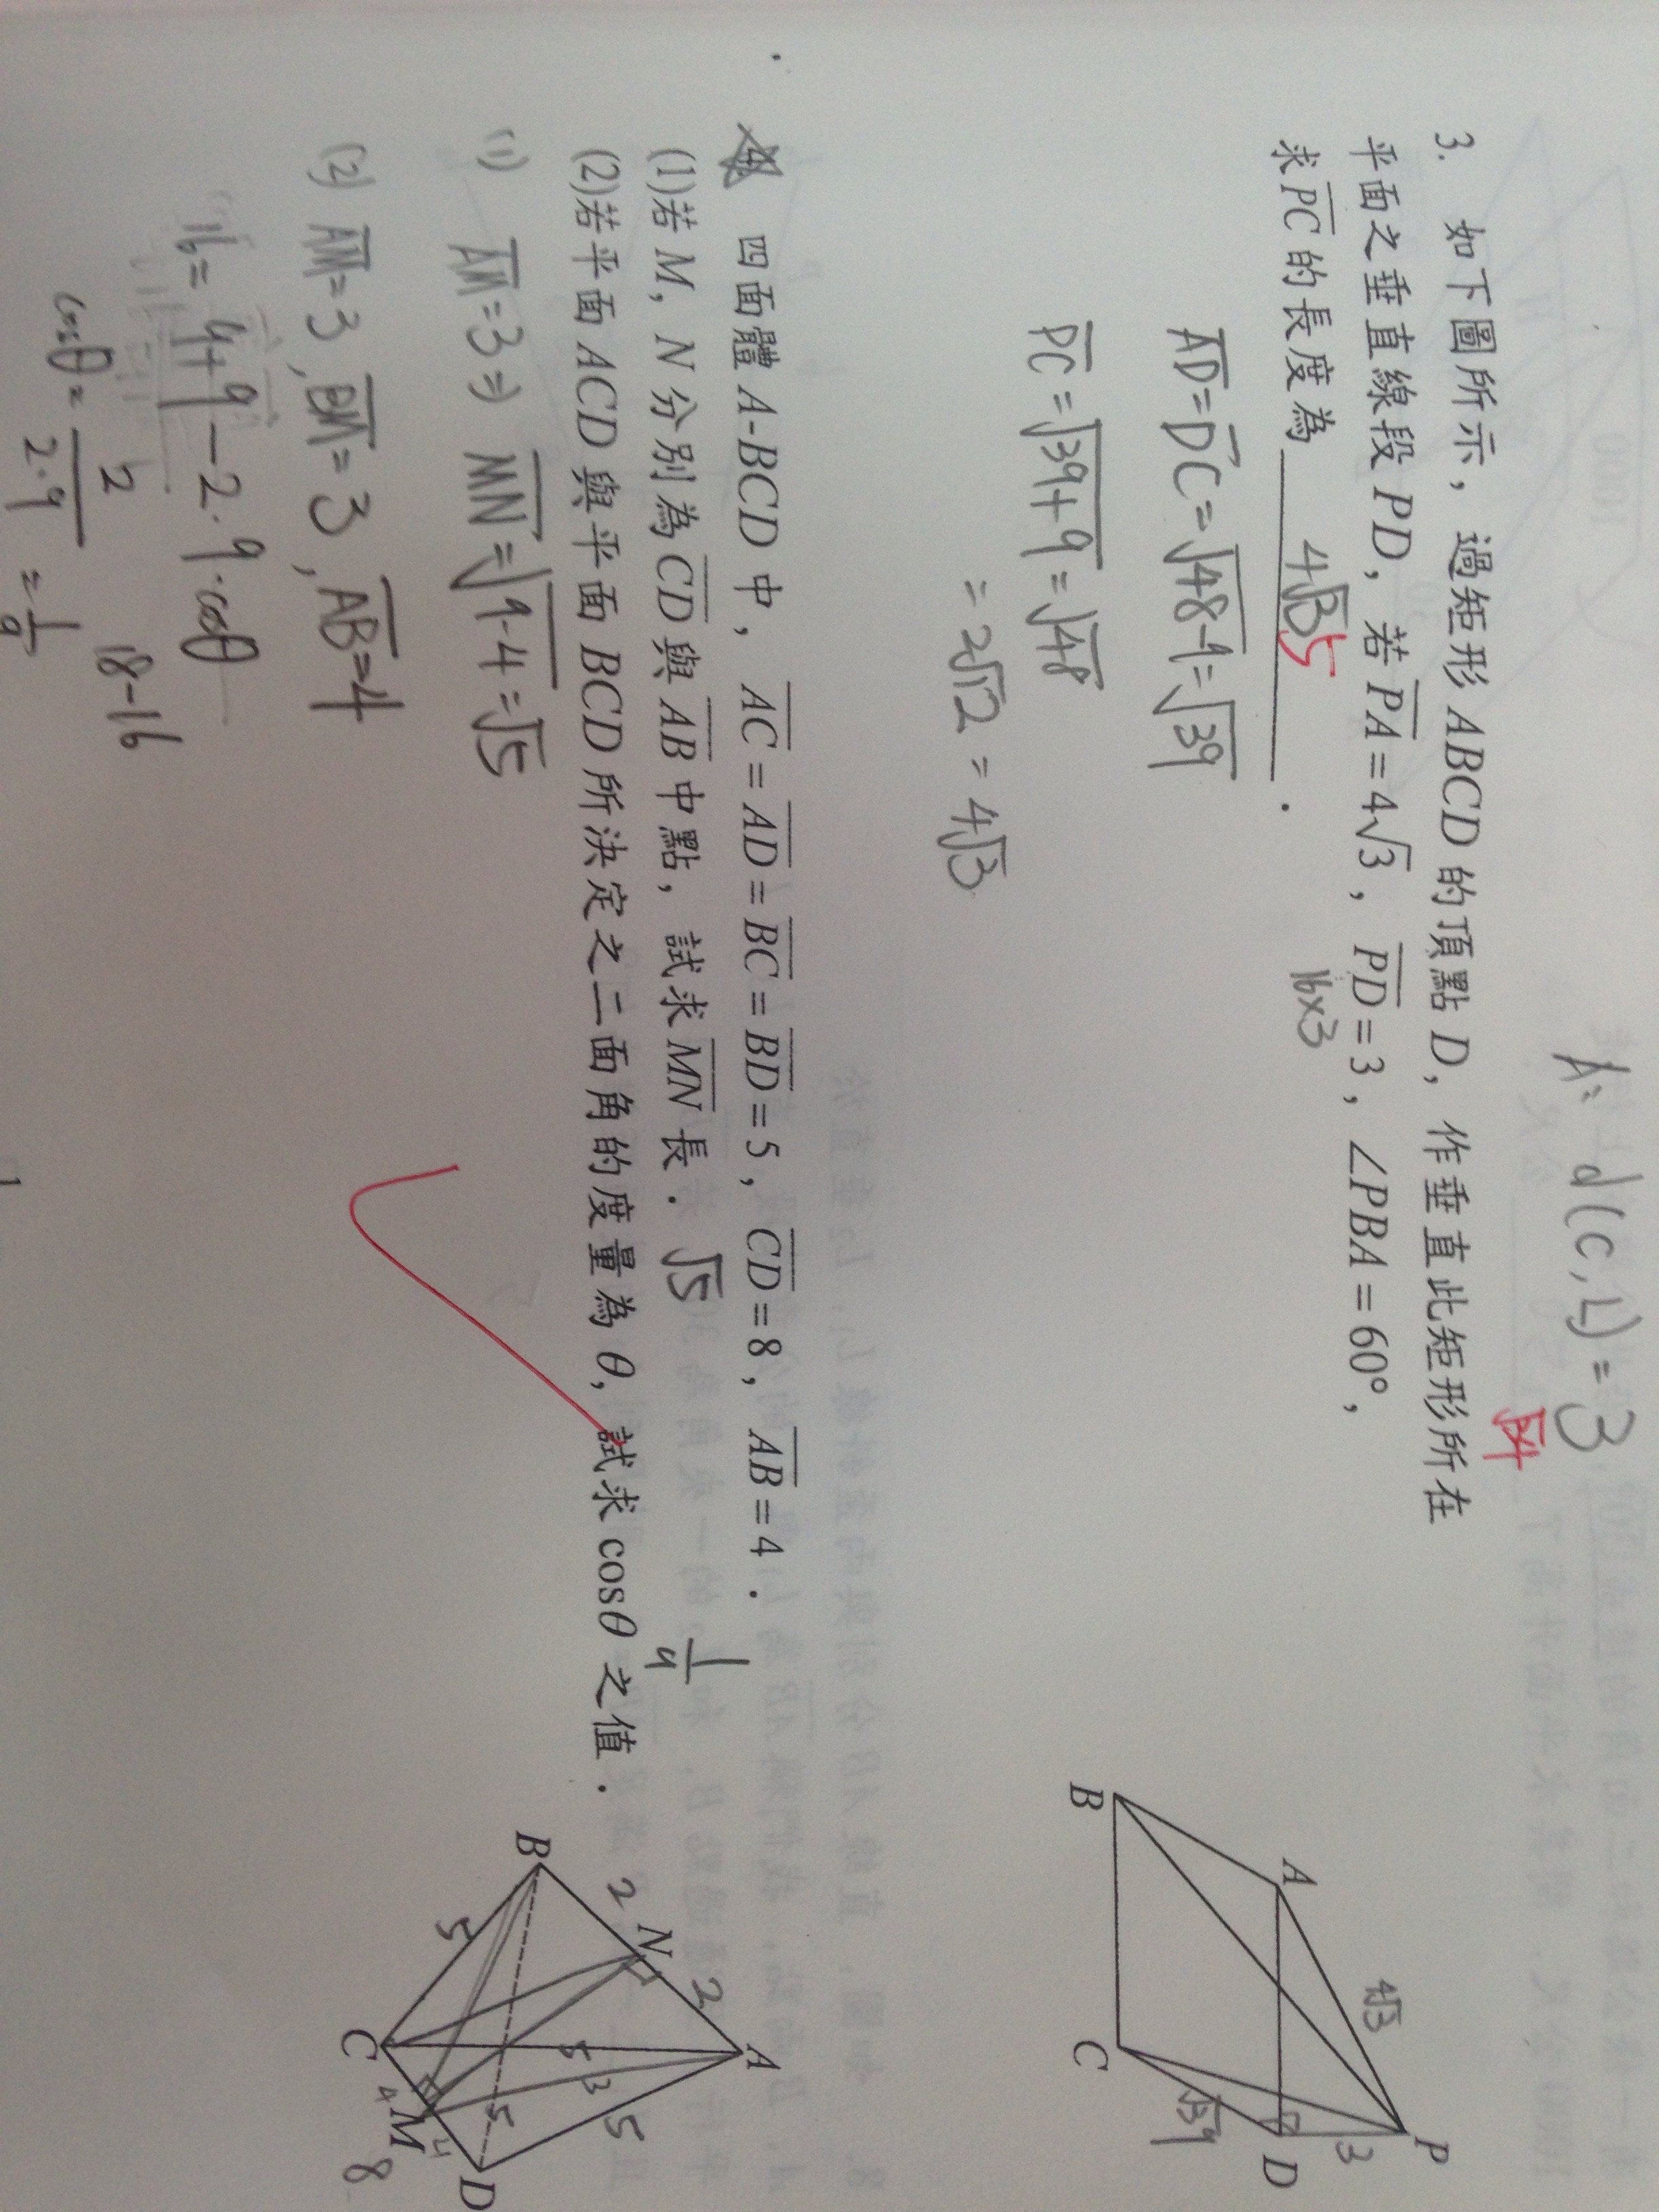 A: d(C, L) = 3
√54
3. 如下圖所示，過矩形 ABCD 的頂點 D，作垂直此矩形所在
平面之垂直線段 PD，若 PA = 4√3，PD = 3，∠PBA = 60°，
16×3
求 PC 的長度為 4√3 5 ．
AD = DC = √48-9 = √39
PC = √39+9 = √48
= 2√12 = 4√3
P
A
B
C
D
4√3
3
√39
4. 四面體 A-BCD 中，AC = AD = BC = BD = 5，CD = 8，AB = 4．
(1)若 M，N 分別為 CD 與 AB 中點，試求 MN 長． √5
(2)若平面 ACD 與平面 BCD 所決定之二面角的度量為 θ，試求 cosθ 之值． 1/9
(1) AM = 3 ⇒ MN = √9-4 = √5
(2) AM = 3, BM = 3, AB = 4
16 = 9+9 - 2·9·cosθ
18-16
cosθ = 2/2·9 = 1/9
A
B
N
C
M
D
2
2
5
5
3
5
5
4
4
8